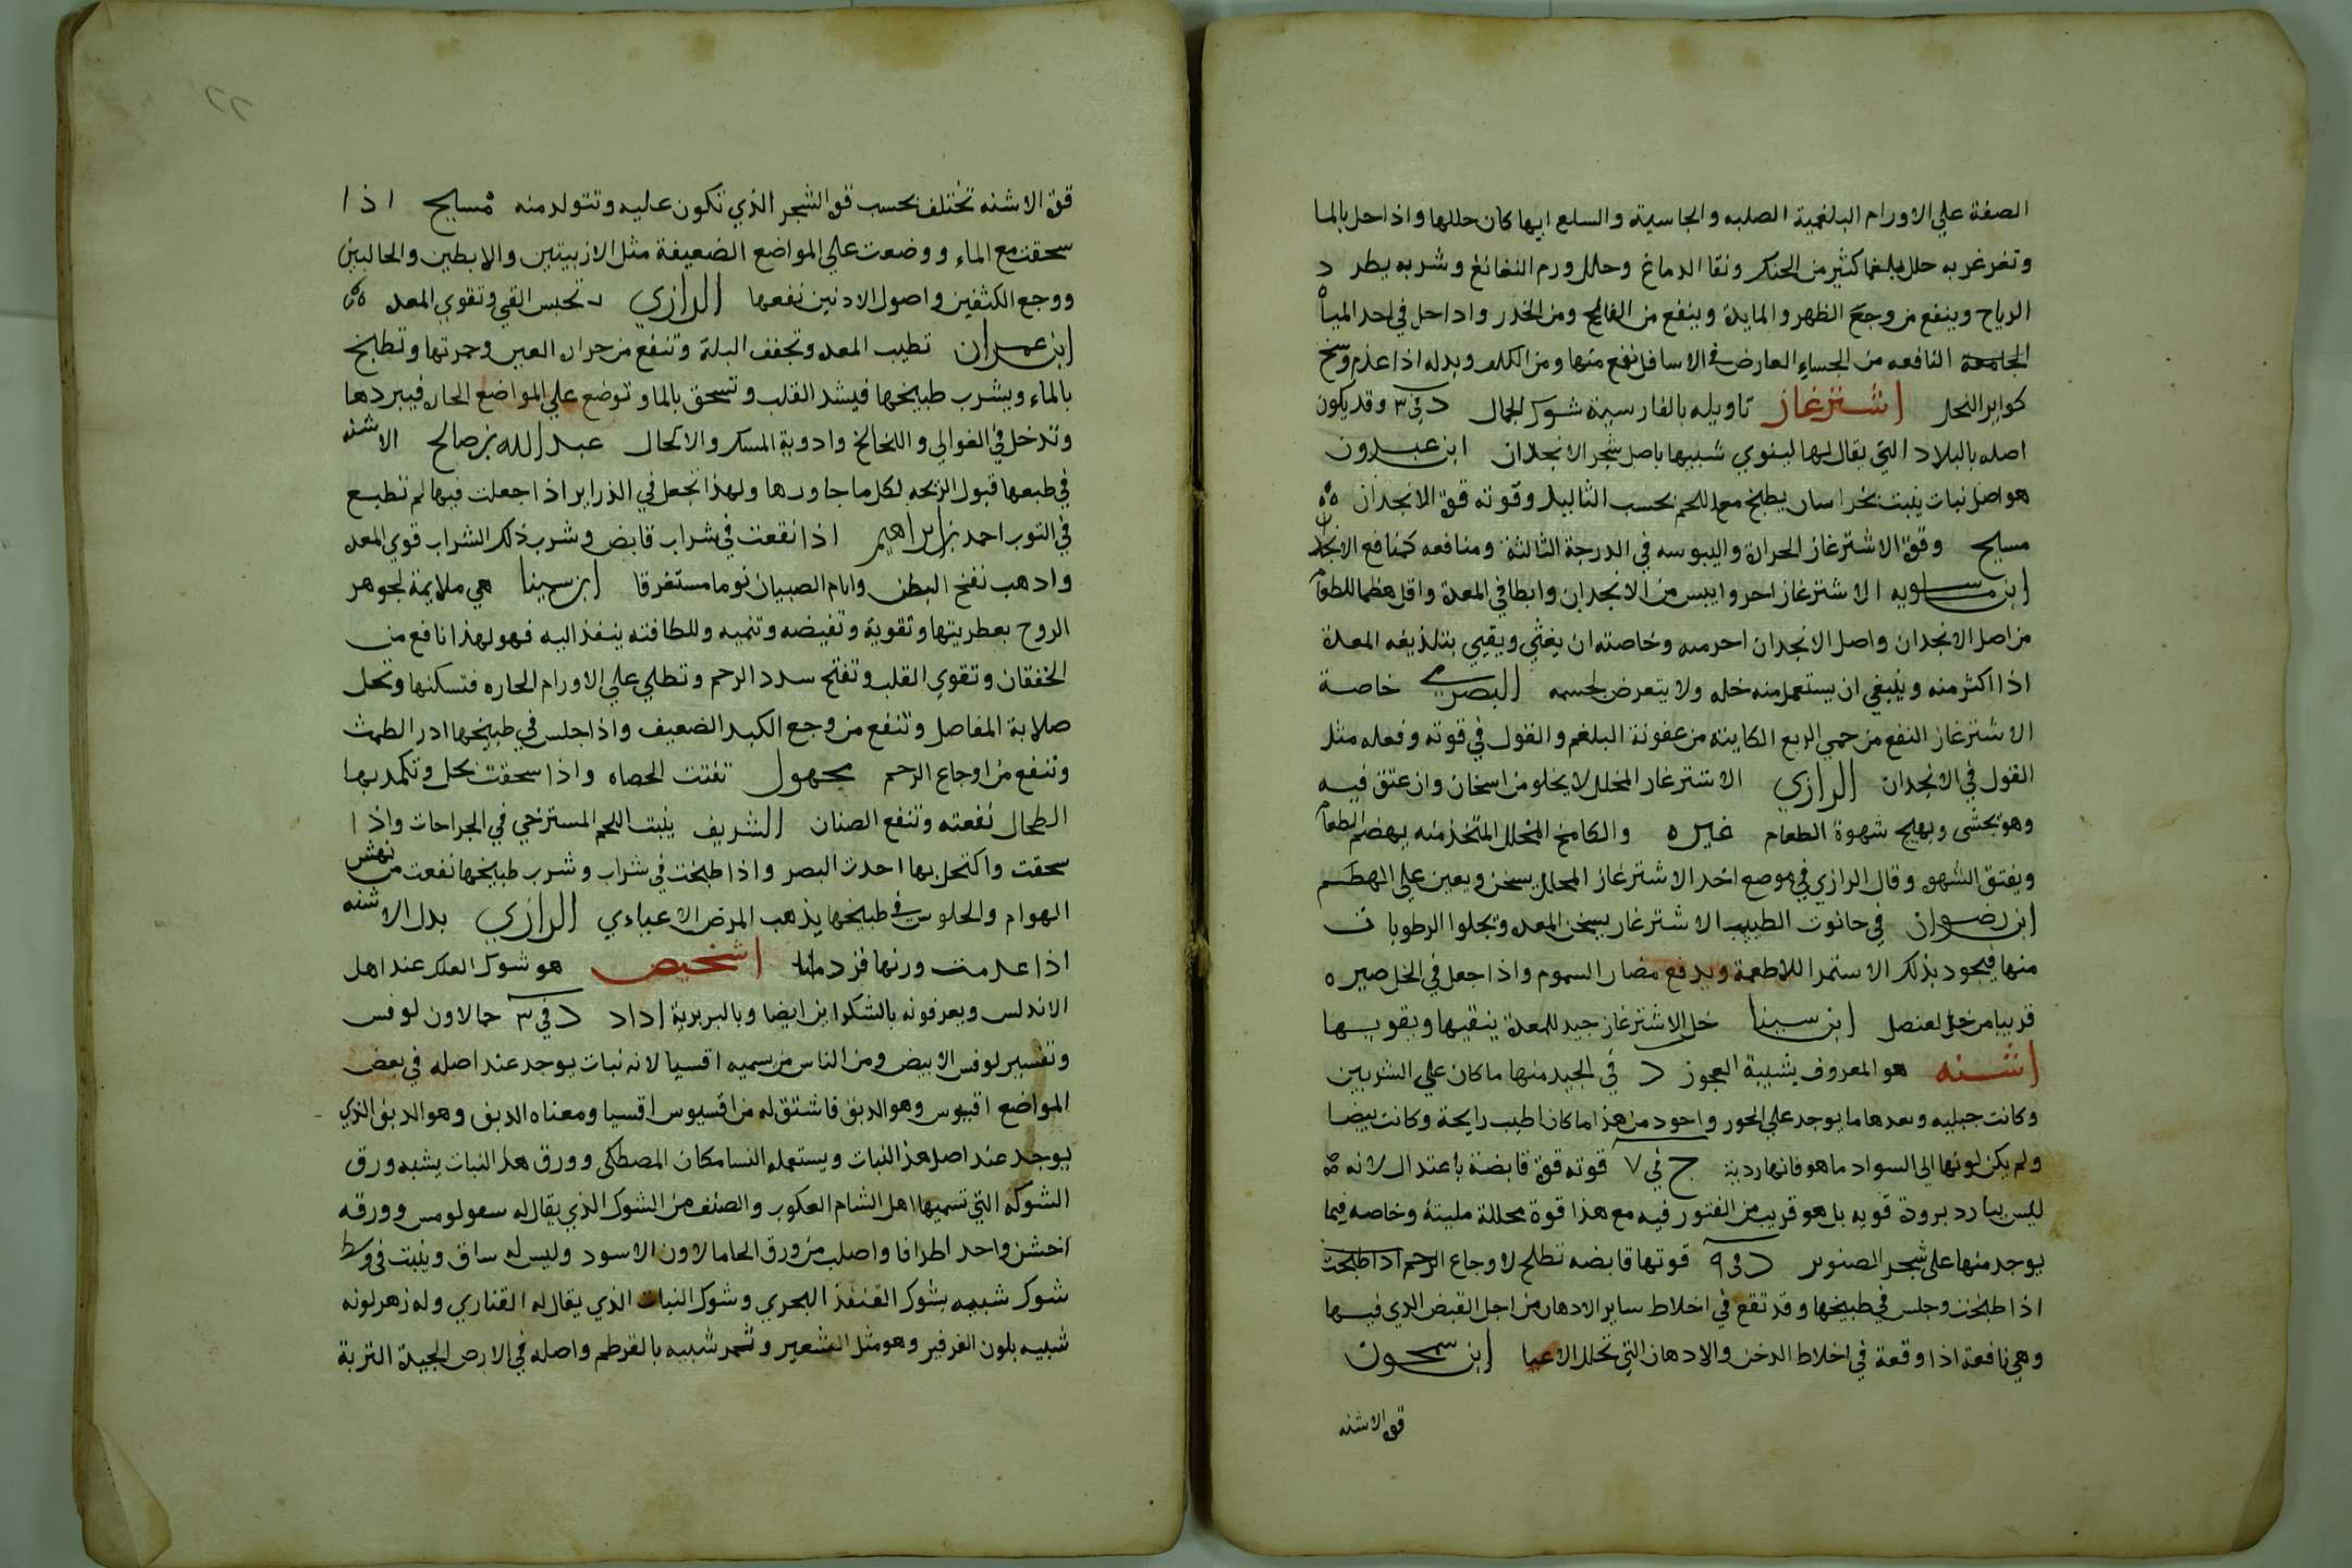 الصفة علي الاورام البلغمية الصلبه والجاسية والسلع ايها كان حللها واذا حل بالما
وتغرغر به حلل بلغما كثير من الحنك ونقا الدماغ وحلل ورم النغانغ وشربه يطرد
الرياح وينفع من وجع الظهر والمايدة وينفع من الفالج ومن الخدر واداحل في احد المياه
الجامعة النافعه من الجساء العارض في الاسافل نفع منها ومن الكلف وبدله اذا عدم وسخ
كواير النحل اشترغاز تاويله بالفارسية شوك الجمال د في ٣ وقد يكون
اصله بالبلاد التي يقال لها لينوي شبيها باصل شجر الانجدان ابن عبدون
هو اصل نبات ينبت بخراسان يطبخ مع اللحم بحسب الثاليل وقوته قوة الانجدان
مسايح وقوة الاشترغاز الحرارة واليبوسه في الدرجة الثالثة ومنافعه كمنافع الانجدان
ابن ماسويه الاشترغاز احر وايبس من الانجدان وابطا في المعدة واقل هظما للطعام
من اصل الانجدان واصل الانجدان احر منه وخاصته ان يغثي ويقيي بتلذيعه المعدة
اذا اكثر منه وينبغي ان يستعمل منه خله ولا يتعرض لجسمه البصري خاصة
الاشترغاز النفع من حمي الربع الكاينة من عفونة البلغم والقول في قوته وفعله مثل
القول في الانجدان الرازي الاشترغار المخلل لا يخلو من اسخان وان عتق فيه
وهو يجشى ويهيج شهوة الطعام غيره والكامخ المخلل المتخذ منه يهضم الطعام
ويفتق الشهوة وقال الرازي في موضع اخر الاشترغاز المخلل يسخن ويعين علي الهظم
ابن رضوان في حانوت الطبيب الاشترغار يسخن المعدة ويجلوا الرطوبات
منها فيجود بذلك الاستمرا للاطعمة ويدفع مضار السموم واذا جعل في الخل صيره
قريبا من خل العنصل ابن سينا خل الاشترغاز جيد للمعدة ينقيها ويقويها
اشنه هو المعروف بشيبة العجوز د في الجيد منها ما كان علي الشربين
وكانت جبليه وبعدها ما يوجد علي الحور واجود من هذا ما كان اطيب رايحة وكانت بيضا
ولم يكن لونها الى السواد ما هو فانها ردية ج في ٧ قوته قوة قابضة باعتدال لانه
ليس ببارد برودة قويه بل هو قريب من الفتور فيه مع هذا قوة محللة ملينة وخاصه فيما
يوجد منها على شجر الصنوبر د في ٩ قوتها قابضه تصلح لاوجاع الرحم اذا طبخت
اذا طبخت وجلس في طبيخها وقد تقع في اخلاط ساير الادهان من اجل القبض الذي فيها
وهي نافعة اذا وقعة في اخلاط الدخن والادهان التي تحلل الاعيا ابن سمجون
قوة الاشنه
قوة الاشنه تختلف بحسب قوة الشجر الذي تكون عليه وتتولد منه مسايح اذا
سحقت مع الماء ووضعت علي المواضع الضعيفة مثل الاربيتين والابطين والحالبين
ووجع الكتفين واصول الادنين نفعها الرازي تحبس القي وتقوي المعدة
ابن عمران تطيب المعدة وتجفف البلة وتنفع من حرارة العين وحمرتها وتطبخ
بالماء ويشرب طبيخها فيشد القلب وتسحق بالما وتوضع علي المواضع الحارة فيبردها
وتدخل في الغوالي واللخالخ وادوية المسك والاكحال عبد الله بن صالح الاشنه
في طبعها قبول الرايحه لكل ما جاورها ولهذا تجعل في الذراير اذا جعلت فيها لم تطبع
في الثوب احمد بن ابراهيم اذا نقعت في شراب قابض وشرب ذلك الشراب قوي المعدة
واذهب نفخ البطن وانام الصبيان نوما مستغرقا ابن سينا هي ملايمة لجوهر
الروح بعطريتها وتقوية وتقبضه وتنميه وللطافته ينفذ اليه فهو لهذا نافع من
الخفقان وتقوي القلب وتفتح سدد الرحم وتطلي علي الاورام الحاره فتسكنها وتحل
صلابة المفاصل وتنفع من وجع الكبد الضعيف واذا جلس في طبيخها ادر الطمث
وتنفع من اوجاع الرحم مجهول تفتت الحصاه واذا سحقت بخل وتكمد بها
الطحال نفعته وتنفع الصنان الشريف ينبت اللحم المسترخي في الجراحات واذا
سحقت واكتحل بها احدت البصر واذا طبخت في شراب وشرب طبيخها نفعت من نهش
الهوام والجلوس في طبيخها يذهب المرض الاعياءي الرازي بدل الاشنه
اذا عدمت وزنها قردمانا اشخيص هو شوك العلك عند اهل
الاندلس ويعرفونه بالشكراين ايضا وبالبربرية اداد د في ٣ حمالاون لوفس
وتفسير لوفس الابيض ومن الناس من يسميه اقسيا لانه نبات يوجد عند اصله في بعض
المواضع اقيوس وهو الدبق فاشتق له من اقسيوس اقسيا ومعناه الدبق وهو الدبق الذي
يوجد عند اصل هذا النبات ويستعمله النسا مكان المصطكى وورق هذا النبات يشبه ورق
الشوكه التي تسميها اهل الشام العكوب والصنف من الشوك الذي يقال له سعولومس وورقه
اخشن واحد اطرافا واصلب من ورق الحامالاون الاسود وليس له ساق وينبت في وسط
شوك شبيه بشوك القنفذ البحري وشوك النبات الذي يقال له القناري وله زهر لونه
شبيه بلون الفرفير وهو مثل الشعير وثمر شبيه بالقرطم واصله في الارض الجيدة التربة